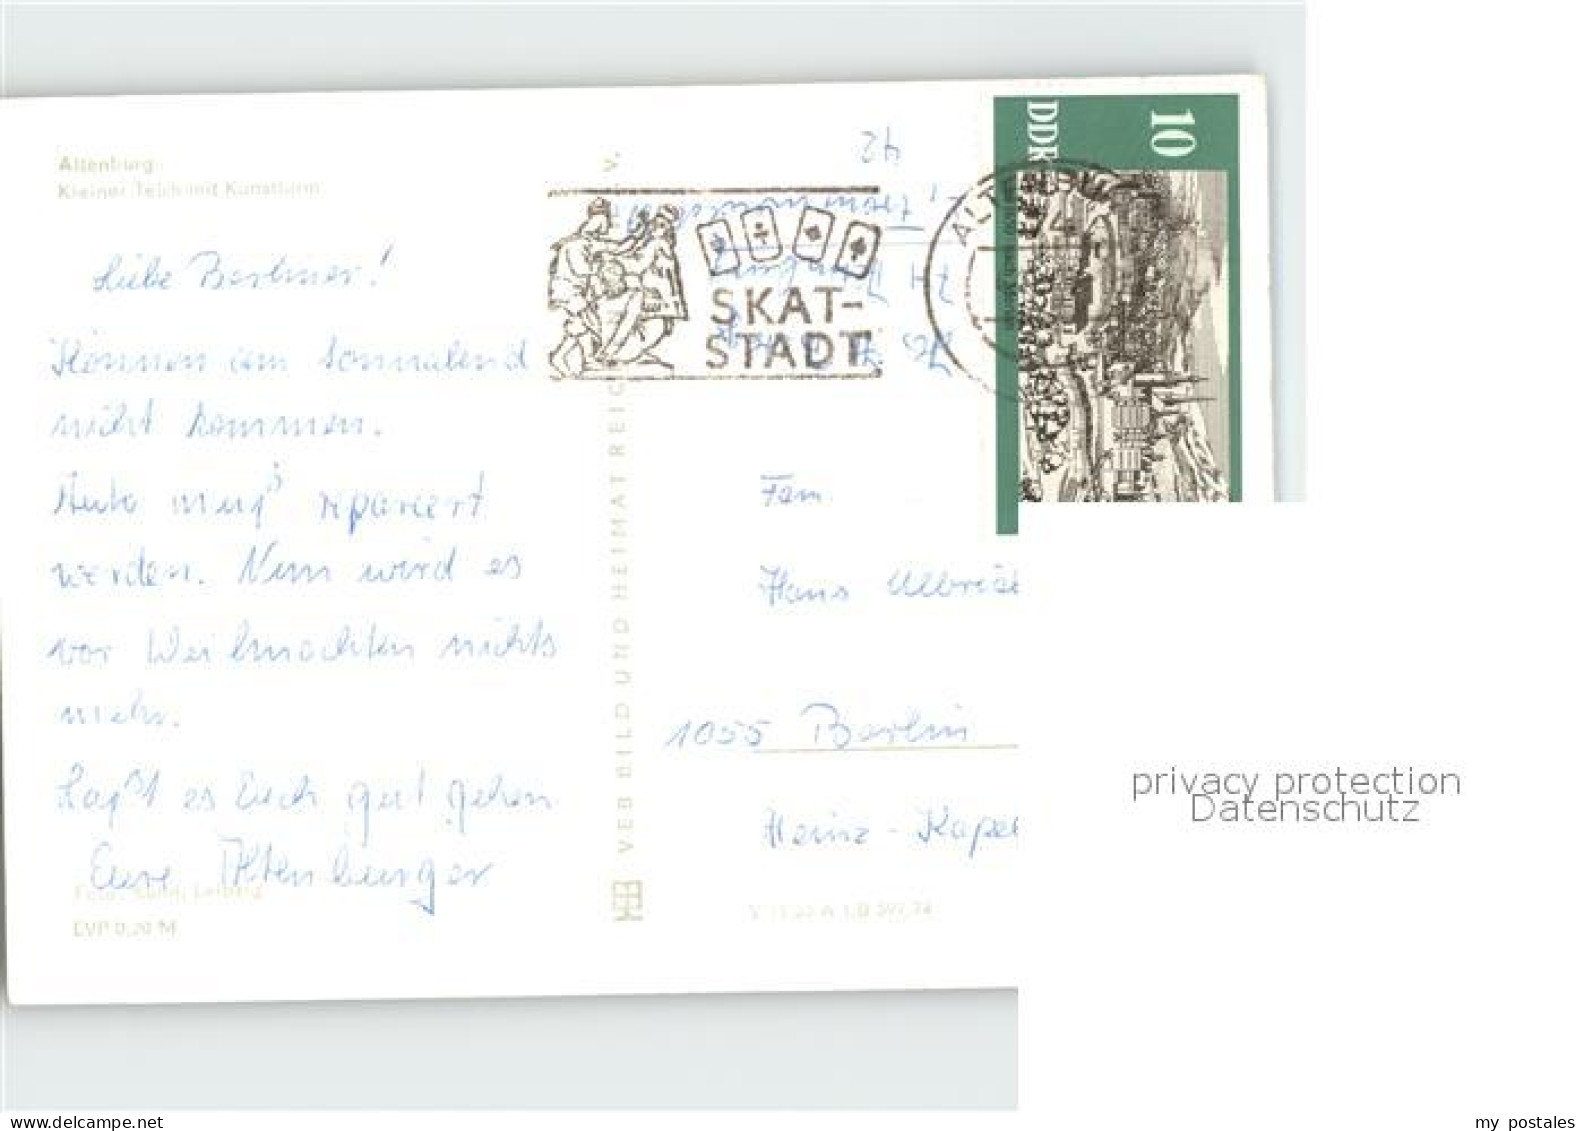 Altenburg
Kleiner Teich mit Kunstturm
Liebe Berliner!
Können am Sonnabend
nicht kommen.
Auto muß repariert
werden. Nun wird es
vor Weihnachten nichts
mehr.
Laßt es Euch gut gehen
Eure Altenburger
Leipzig
EVP 0,20 M
VEB BILD UND HEIMAT REIC
V.
42
74 Altenburg
SKAT-
STADT
ALTE
74
DDR
10
Fam.
Hans Ulbrich
1055 Berlin
Heinz - Kapel
privacy protection
Datenschutz
www.delcampe.net
my_postales